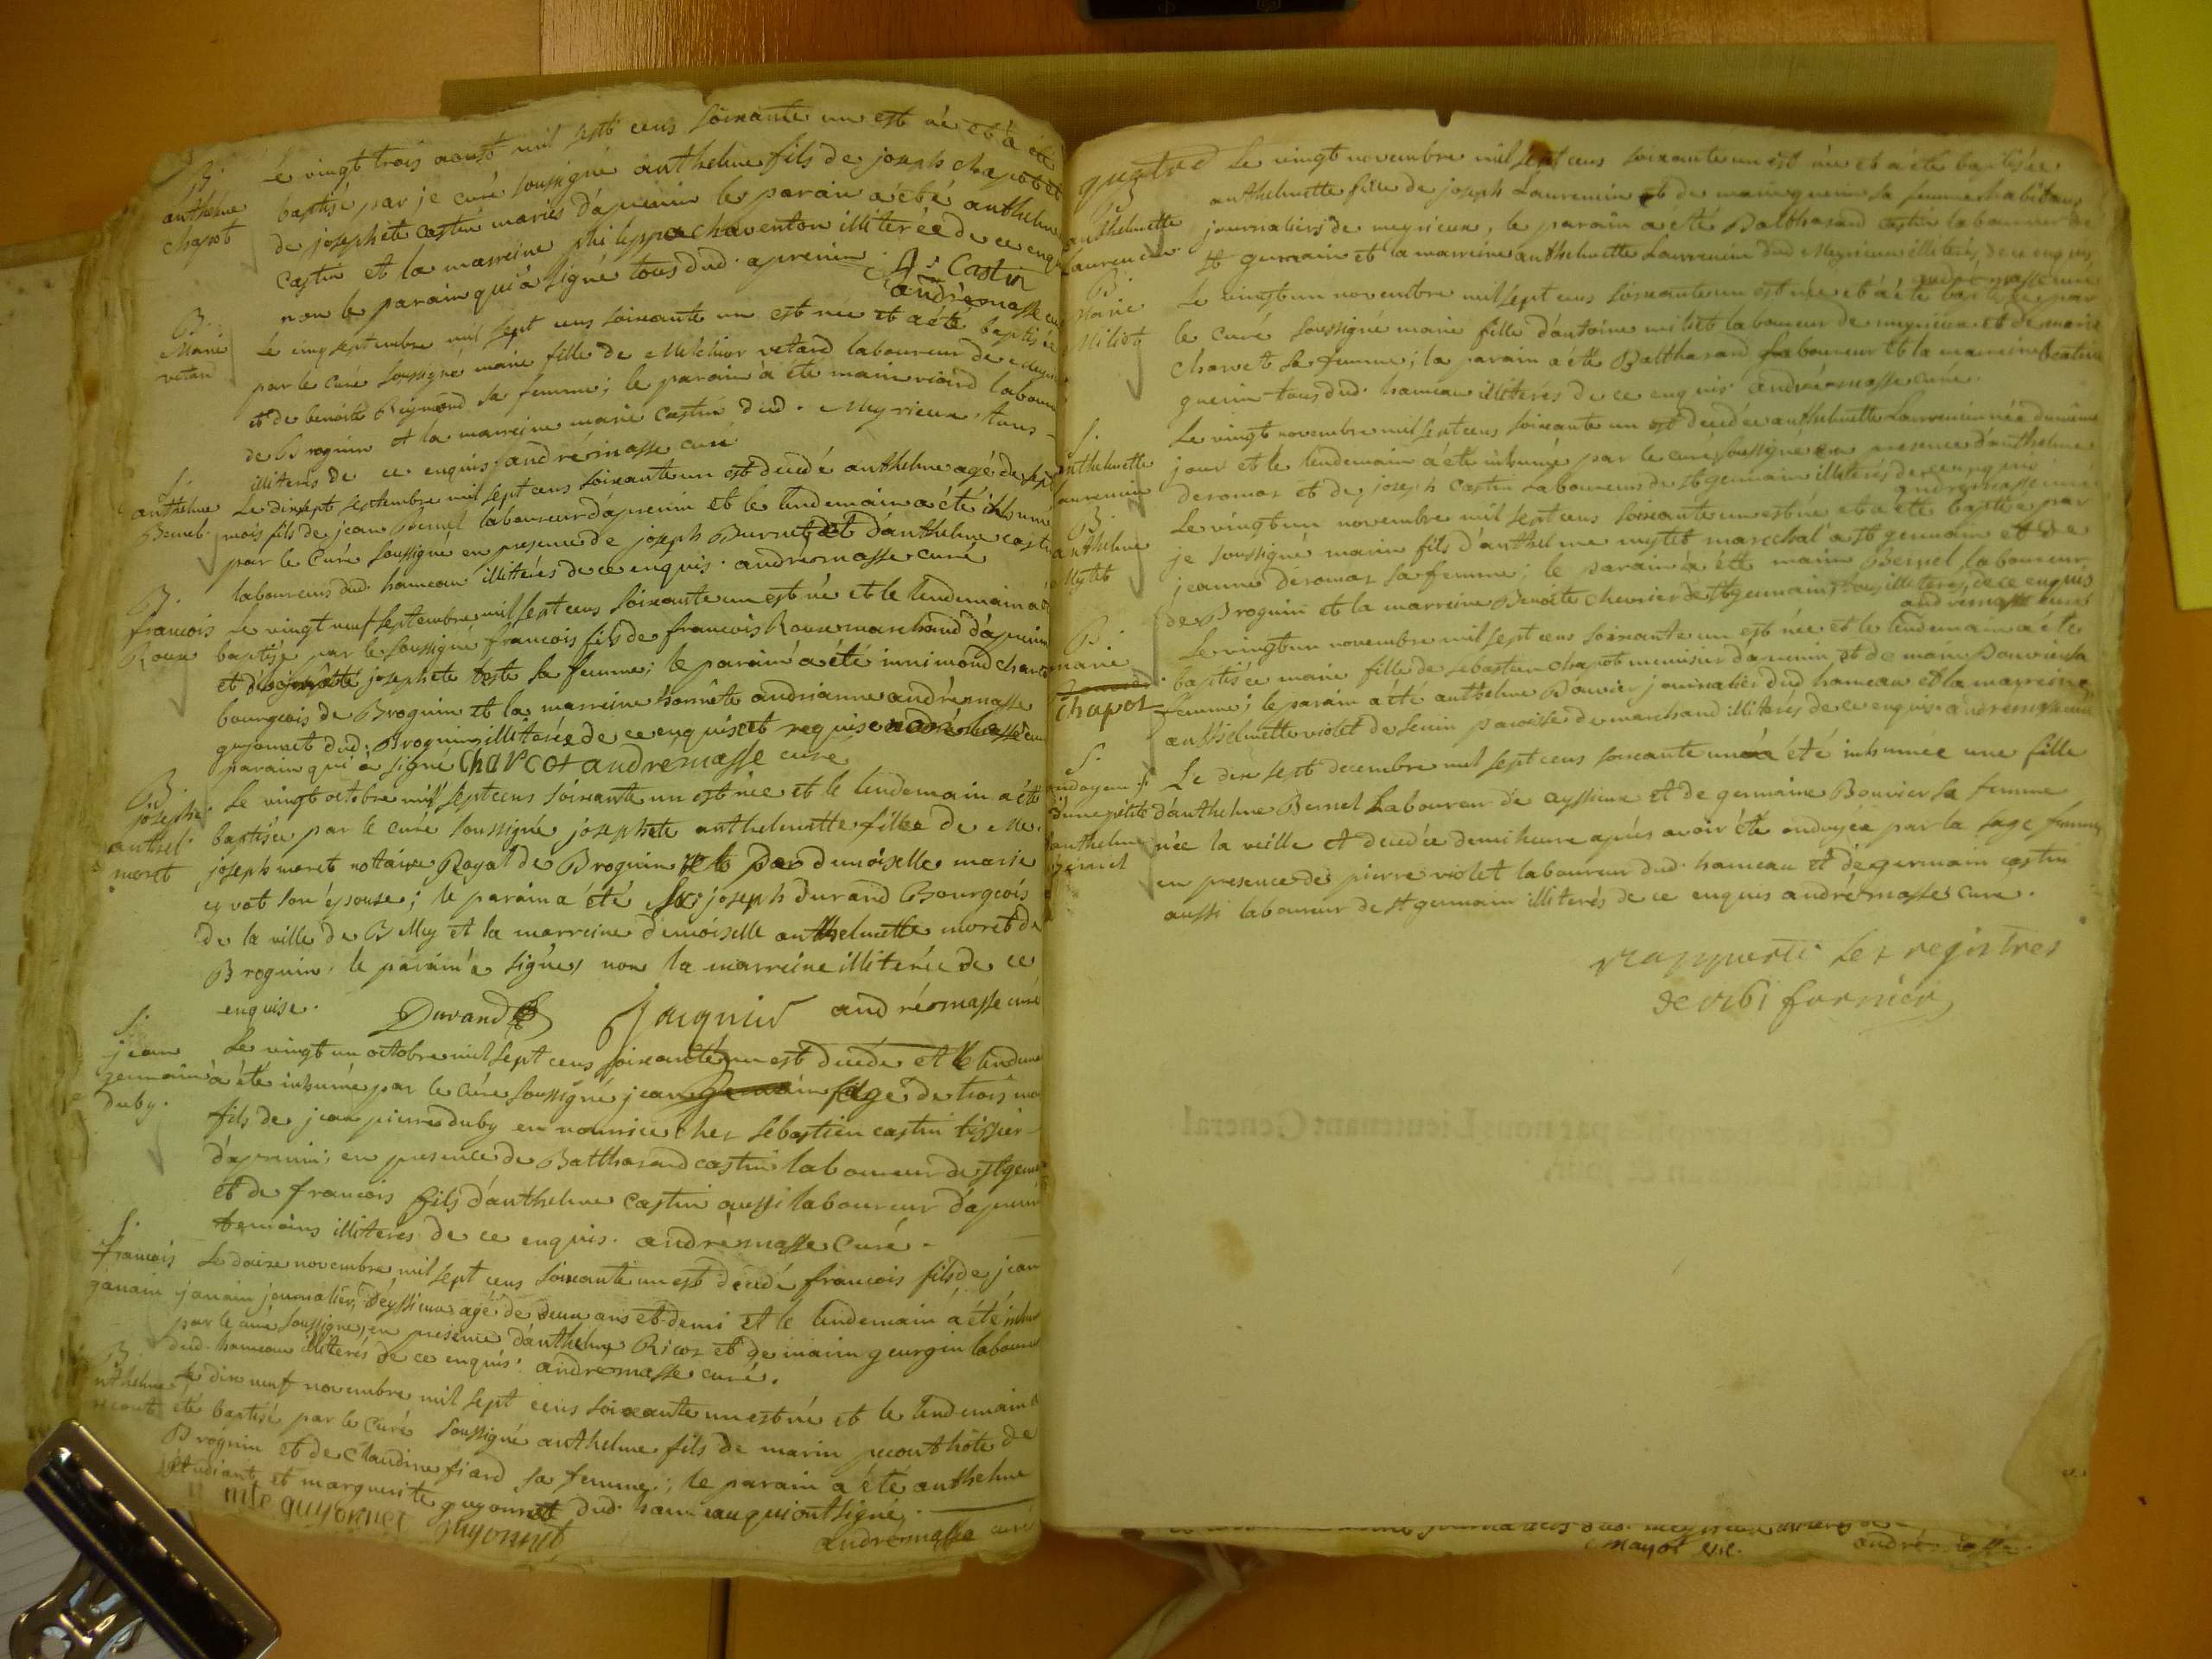 B.
anthelme
chapot
Le vingt trois aoust mil sept cens soixante un est né et a été
baptisé par je curé soussigné anthelme fils de joseph chapot et
de josephte castin mariés d'apremin le parain a été anthelme
castin et la marreine philippa chaventon illiterée de ce enqu
non le parain qui a signé tous dud. apremin. As Castin
andrémasse cu
B.
Marie
vetard
Le cinq septembre mil sept cens soixante un est née et a été baptisée
par le curé soussigné marie fille de Melchior vetard laboureur de Meyri
et de benoite Reymond sa femme; le parain a été marin riond labour
de Brognin et la marreine marie castin dud. Meyrieux, tous
illiterés de ce enquis. andrémasse curé
S.
anthelme
Bernel
Le dixsept septembre mil sept cens soixante un est decedé anthelme agé de sept
mois fils de jean Bernel laboureur d'apremin et le lendemain a été inhumé
par le curé soussigné en presence de joseph Burnet et d'anthelme casti
laboureurs dud. hameau illiterés de ce enquis. andrémasse curé
B.
francois
Roux
Le vingt neuf septembre mil sept cens soixante un est né et le lendemain a é
baptisé par le soussigné francois fils de francois Roux marchand d'apremin
et de josephte teste sa femme; le parain a été innimond charco
bourgeois de Brognin et la marreine honnête andrianne andrémasse
guyonnet dud. Brognin illiterée de ce enquise et requise
parain qui a signé Charcot andremasse curé
B.
josephe
anthel.
moret
Le vingt octobre mil sept cens soixante un est née et le lendemain a été
baptisée par le curé soussigné josephte anthelmette fille de Me.
joseph moret notaire Royal de Brognin et de demoiselle marie
eyvot son épouse; le parain a été Sr. joseph Durand Bourgeois
de la ville de Belley et la marreine demoiselle anthelmette moret de
Brognin. le parain a signé, non la marreine illiterée de ce
enquise. Durand andrémasse curé
S.
jean
germain
duby.
Le vingt un octobre mil sept cens soixante un est decedé et le lendemai
a été inhumé par le curé soussigné jean germain agé de trois mo
fils de jean pierre duby en nourrice chez sebastien castin tissier
d'apremin; en presence de Balthasard castin laboureur de St germ
et de francois fils d'anthelme castin aussi laboureur d'apremin
temoins illiterés de ce enquis. andrémasse Curé.
S.
francois
janain
Le douze novembre mil sept cens soixante un est decedé francois fils de jean
janain journalier, d'eyssieux agé de deux ans et demi et le lendemain a été inhu
par le curé soussigné, en presence d'anthelme Ricoz et de marin geurgin labour
dud. hameau illiterés de ce enquis. andrémasse curé.
B.
nthelme
Le dix neuf novembre mil sept cens soixante un est né et le lendemain a
été baptisé par le Curé soussigné anthelme fils de marin hôte de
Brognin et de Claudine fiard sa femme; le parain a été anthelme
étudiant et marguerite guyonnet dud. hameau qui ont signé.
mte guyonnet guyonnet andremasse curé
quatre
B.
anthelmette
Laurencin
Le vingt novembre mil sept cens soixante un est née et a été baptisée
anthelmette fille de joseph Laurencin et de marie guerin sa femme habitans
journaliers de meyrieux, le parain a été Balthasard castin laboureur de
St germain et la marreine anthelmette Laurencin dud Meyrieux illiterés, de ce enquis
andrémasse curé
B.
Marie
Miliot
Le vingt un novembre mil sept cens soixante un est née et a été baptisée par
le curé soussigné marie fille d'antoine miliet laboureur de meyrieux et de marie
charvet sa femme; la parain a été Balthasard Laboureur et la marreine
guerin tous dud. hameau illiterés de ce enquis. andrémasse curé.
S.
anthelmette
aurencin
Le vingt novembre mil sept cens soixante un est decedée anthelmette Laurencin née du même
jour et le lendemain a été inhumé par le curé soussigné en presence d'anthelme
deromas et de joseph Castin Laboureurs de St germain illiterés de ce enquis
andrémasse curé
B.
anthelme
Mytet
Le vingt un novembre mil sept cens soixante un est né et a été baptisé par
je soussigné marin fils d'anthelme mytet marechal a St germain et de
jeanne déromas sa femme; le parain a été marin Bernel laboureur
de Brognin et la marreine Benoite chevrier de St germain, tous illiterés, de ce enquis
andrémasse curé
B.
marie
chapot
Le vingt un novembre mil sept cens soixante un est née et le lendemain a été
baptisée marie fille de sebastien chapot menuisier d'apremin et de marie Bouvier sa
femme; le parain a été anthelme Bouvier journalier dud hameau et la marreine
anthelmette violet de senin paroisse de marchand illiterés de ce enquis. andrémasse curé
S.
d'une petite
d'anthelme
bernel
Le dix sept decembre mil sept cens soixante un a été inhumée une fille
d'anthelme Bernel Laboureur de eyssieux et de germaine Bouvier sa femme
née la veille et decedée demi heure après avoir été ondoyée par la sage femme
en presence de pierre violet laboureur dud. hameau et de germain castin
aussi laboureur de St germain illiterés de ce enquis andrémasse Curé.
rapporté les registres